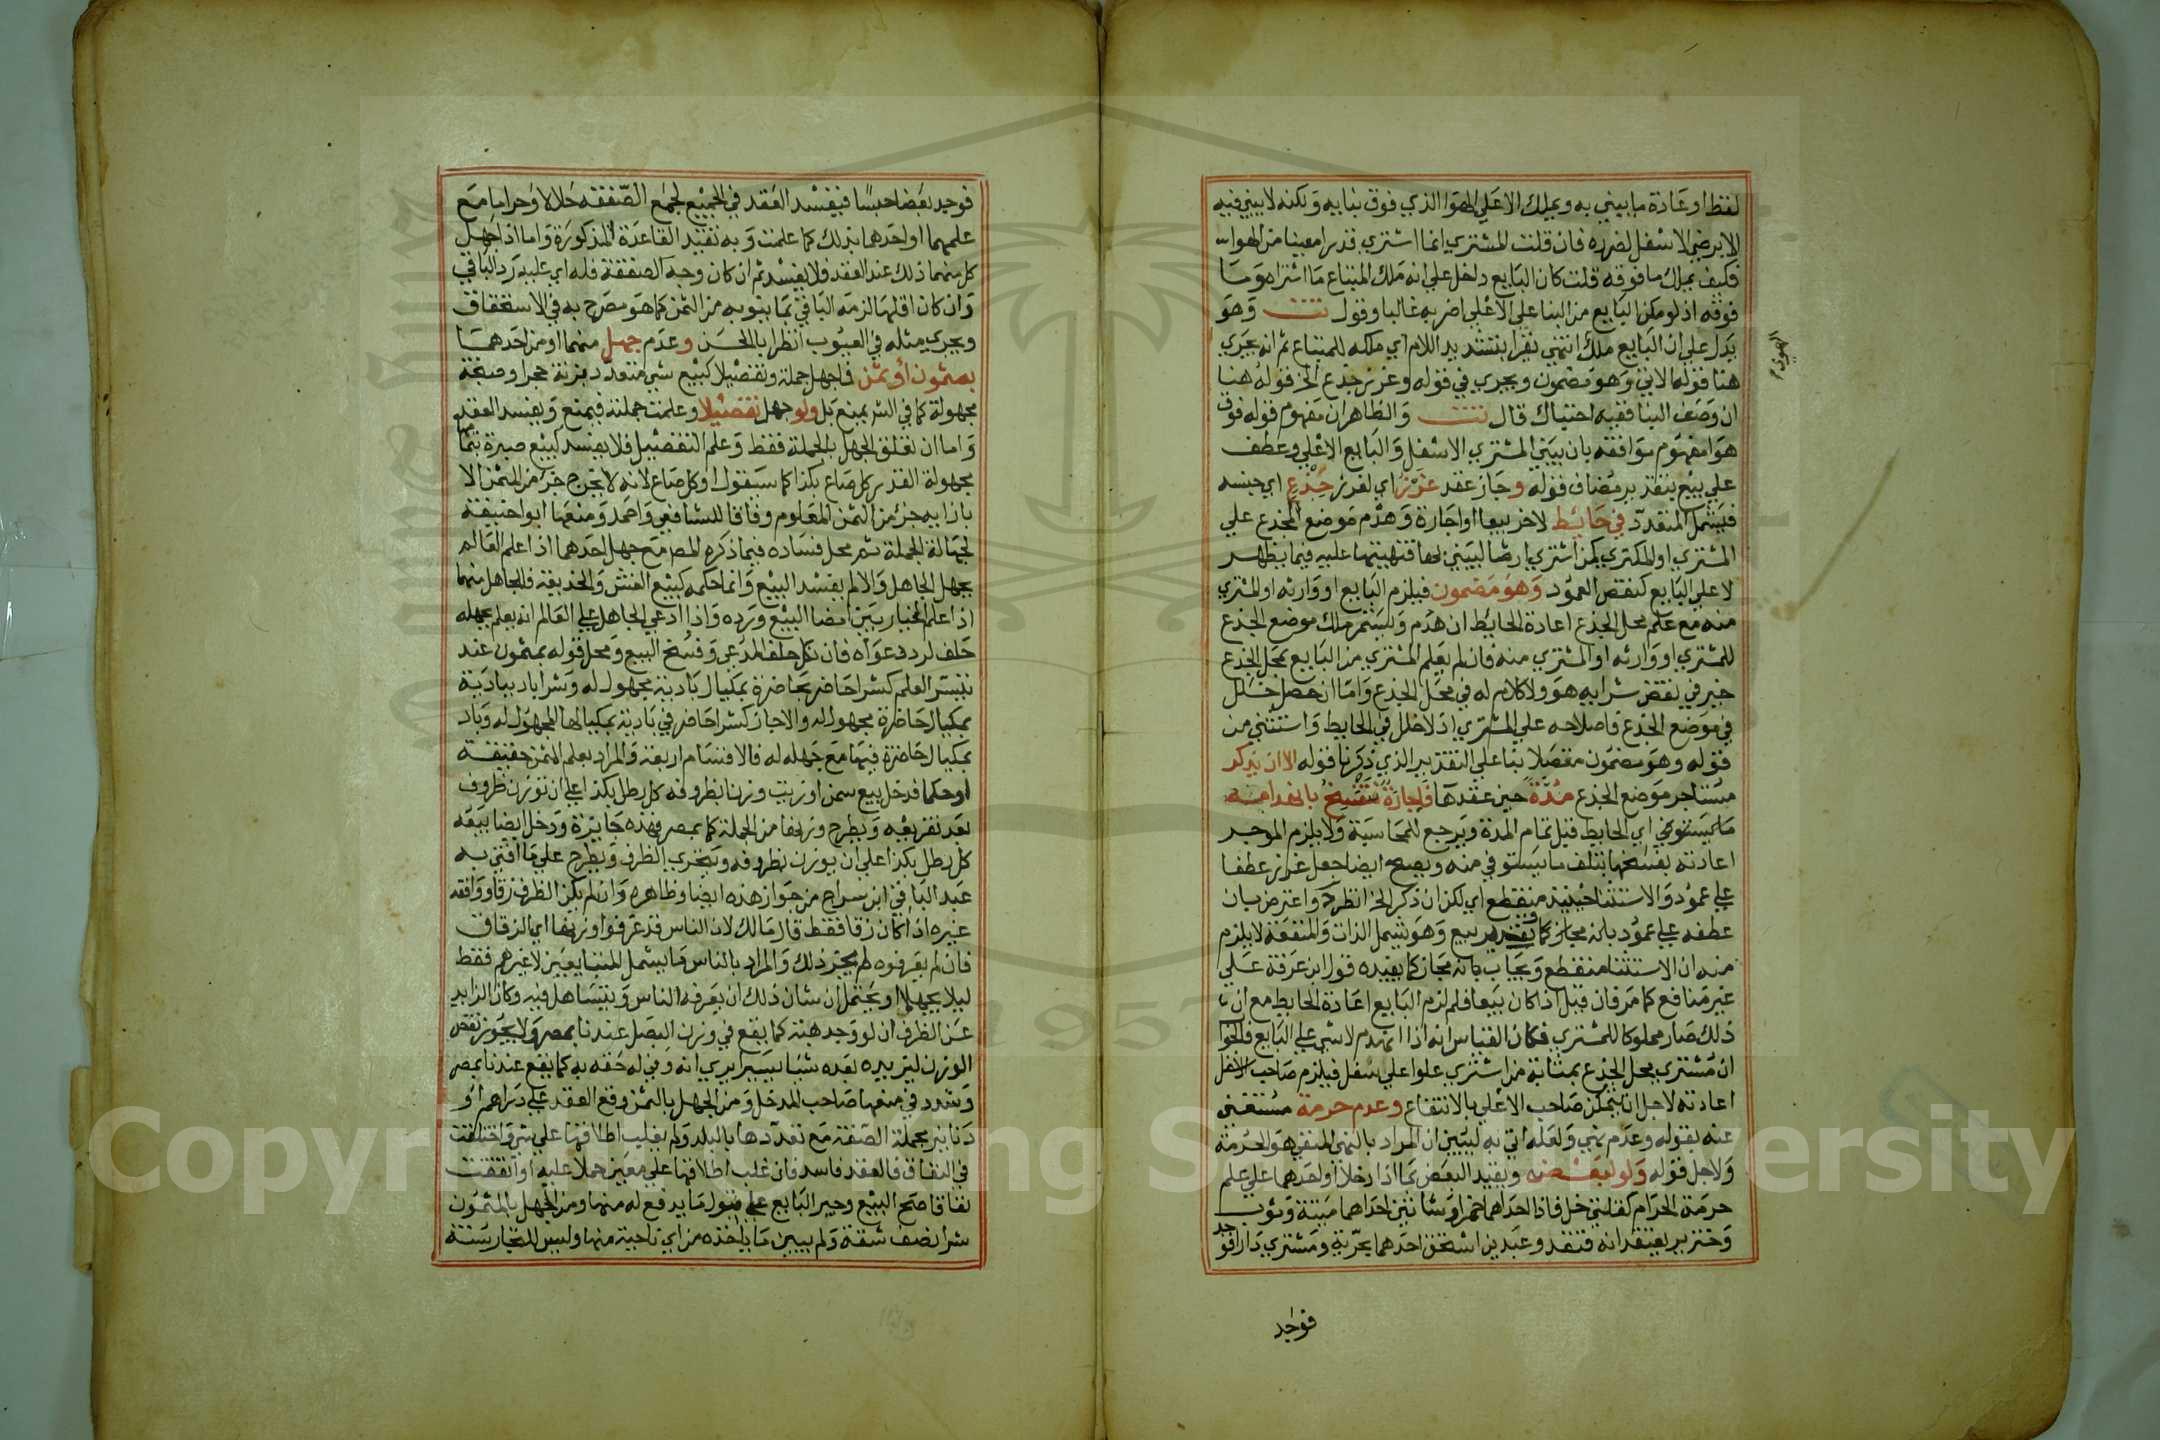 لفظا او عادة ما يبني به ويملك الاعلي الهوا الذي فوق بنايه ولكنه لا يبني فيه
الا برضي الاسفل لضرره فان قلت المشتري انما اشتري قدرا معينا من الهواء
فكيف يملك ما فوقه قلت كان البايع داخل علي انه ملك المبتاع ما اشتراه وما
فوقه اذ لو مكن البايع من البنا علي الاعلي اضر به غالبا وقول تت وهو
يدل علي ان البايع ملك انتهي يقرا بتشديد اللام اي ملكه للمبتاع ثم انه يجري
هنا قوله الاتي وهو مضمون ويجري في قوله وغرز جذع الخ قوله هنا
ان وصف البنا ففيه احتباك قال تت والظاهر ان مفهوم قوله فوق
هوا مفهوم موافقه بان يبني المشتري الاسفل والبايع الاعلي وعطف
علي بيع بتقدير مضاف قوله وجاز عقد غرز اي لغرز جذع اي جنسه
فيشمل المتعدد في حايط لاخر بيعا او اجارة وهدم موضع الجذع علي
المشتري او المكتري كمن اشتري ارضا ليبني بها فتهيئتها عليه فيما يظهر
لا علي البايع كنقض العمود وهو مضمون فيلزم البايع او وارثه او المشتري
منه مع علم محل الجذع اعادة الحائط ان هدم ويستمر ملك موضع الجذع
للمشتري او وارثه او المشتري منه فان لم يعلم المشتري من البايع بمحل الجذع
خير في نقض شرايه هو ولا كلام له في محل الجذع واما ان حصل خلل
في موضع الجذع فاصلاحه علي المشتري اذ لا خلل في الحايط واستثني من
قوله وهو مضمون مفصلا بنا علي التقدير الذي ذكرنا قوله الا ان يذكر
مستاجر موضع الجذع مدة حين عقدها فاجارة تنفسخ بانهدامه
ما يستوفي اي الحايط قبل تمام المدة ويرجع للمحاسبة ولا يلزم الموجر
اعادته بفسخها بتلف ما يستوفي منه ويصح ايضا جعل غرز عطفا
علي عمود والاستثنا حينئذ منقطع اي لكن ان ذكر الخ انظره واعترض بان
عطفه علي عمود بانه مجاز كما بتقدير بيع وهو يشمل الذات والمنفعة لا يلزم
منه ان الاستثنا منقطع ويجاب بانه مجاز كما يفيده قول ابن عرفة علي
غير منافع كما مر فان قيل اذا كان بيعا فلم لزم البايع اعادة الحايط مع ان
ذلك صار مملوكا للمشتري فكان القياس انه اذا انهدم لا شي علي البايع فالجوا
ان مشتري محل الجذع بمثابة من اشتري علوا علي سفل فيلزم صاحب الاسفل
اعادته لاجل ان يتمكن صاحب الاعلي بالانتفاع وعدم حرمة مستغني
عنه بقوله وعدم نهي ولعله اتي به ليبين ان المراد بالنهي المنفي هو الحرمة
ولاجل قوله ولو لبعضه ويقيد البعض بما اذا دخلا او احدهما علي علم
حرمة الحرام كقلتي خل فاذا احداهما خمر او شاتين احداهما ميتة وثوب
وخنزير يعتقدانه فتقد وعبدين استحق احدهما بحرية ومشتري دار افوجد
الهوي م
فوجد
فوجد بعضا حبسا فيفسد العقد في الجميع لجمع الصفقه حلالا وحراما مع
علمهما او احدهما بذلك كما علمت وبه تقيد القاعدة المذكورة واما اذا جهل
كل منهما ذلك عند العقد فلا يفسد ثم ان كان وجه الصفقة فله اي عليه رد الباقي
وان كان اقلها لزمه الباقي بما ينوبه من الثمن كما هو مصرح به في الاستحقاق
ويجري مثله في العيوب انظر ابا الحسن وعدم جهل منهما او من احدهما
بمثمون أو ثمن فاجهل جملة وتفصيلا كبيع شي متعدد بزنة حجر او صنجة
مجهولة كما في الشر يمنع بل ولو جهل تفصيلا وعلمت جملته فيمنع ويفسد العقد
واما ان تعلق الجهل بالجملة فقط وعلم التفصيل فلا يفسد كبيع صبرة بتمامها
مجهولة القدر كل صاع بكذا كما سيقول او كل صاع لانه لا يخرج جزء من المثمن الا
بازايه جزء من الثمن المعلوم وفاقا للشافعي واحمد ومنعها ابو حنيفة
لجهالة الجملة ثم محل فساده فيما ذكره المص مع جهل احدهما اذا علم العالم
بجهل الجاهل والا لم يفسد البيع وانما حكمه كبيع الغش والخديعة فللجاهل منهما
اذا علم الخيار بين امضا البيع ورده واذا ادعي الجاهل علي العالم انه يعلم بجهله
حلف لرد دعواه فان نكل حلف المدعي وفسخ البيع ومحل قوله بمثمون عند
تيسر العلم كشرا حاضر بحاضرة بمكيال بادية مجهول له وشرا باد ببادية
بمكيال حاضرة مجهول له والا جاز كشرا حاضر في بادية بمكيالها المجهول له وباد
بمكيال حاضرة فيها مع جهله له فالاقسام اربعة والمراد بعلم الثمن حقيقة
او حكما فدخل بيع سمن او زيت وزنا بظروفه كل رطل بكذا علي ان توزن ظروف
بعد تفريغه ويطرح وزنها من الجملة كما بمصر فهذه جايزة ودخل ايضا بيعه
كل رطل بكذا علي ان يوزن بظروفه ويتحري الظرف ويطرح علي ما افتي به
عبد الباقي ابن سراج من جواز هذه ايضا وظاهره وان لم يكن الظرف زقا ووافقه
غيره اذا كان زقا فقط قال مالك لان الناس قد عرفوا وزنها اي الزقاق
فان لم يعرفوه لم يجز ذلك والمراد بالناس ما يشمل المتبايعين لا غيرهم فقط
ليلا يجهلا او يحتمل ان شان ذلك ان يعرفه الناس ويتساهل فيه وكان الزايد
عن الظرف ان لو وجد هبة كما يقع في وزن البصل عندنا بمصر ولا يجوز نقص
الوزن ليزيده بعده شيا يسيرا يري انه وفي له حقه به كما يقع عندنا بمصر
وشدد في منعها صاحب المدخل ومن الجهل بالثمن وقع العقد علي دراهم او
دنانير بجملة الصفقة مع تعددها بالبلد ولم يغلب اطلاقها علي شي واختلفت
في النفاق فالعقد فاسد فان غلب اطلاقها علي معين حملا عليه او اتفقت
نفاقا صح البيع وجبر البايع علي قبول ما يدفع له منها ومن الجهل بالمثمون
شرا نصف شقة ولم يبين ما ياخذه من اي ناحية منها وليس للتجار سنة
Copyright © King Saud University